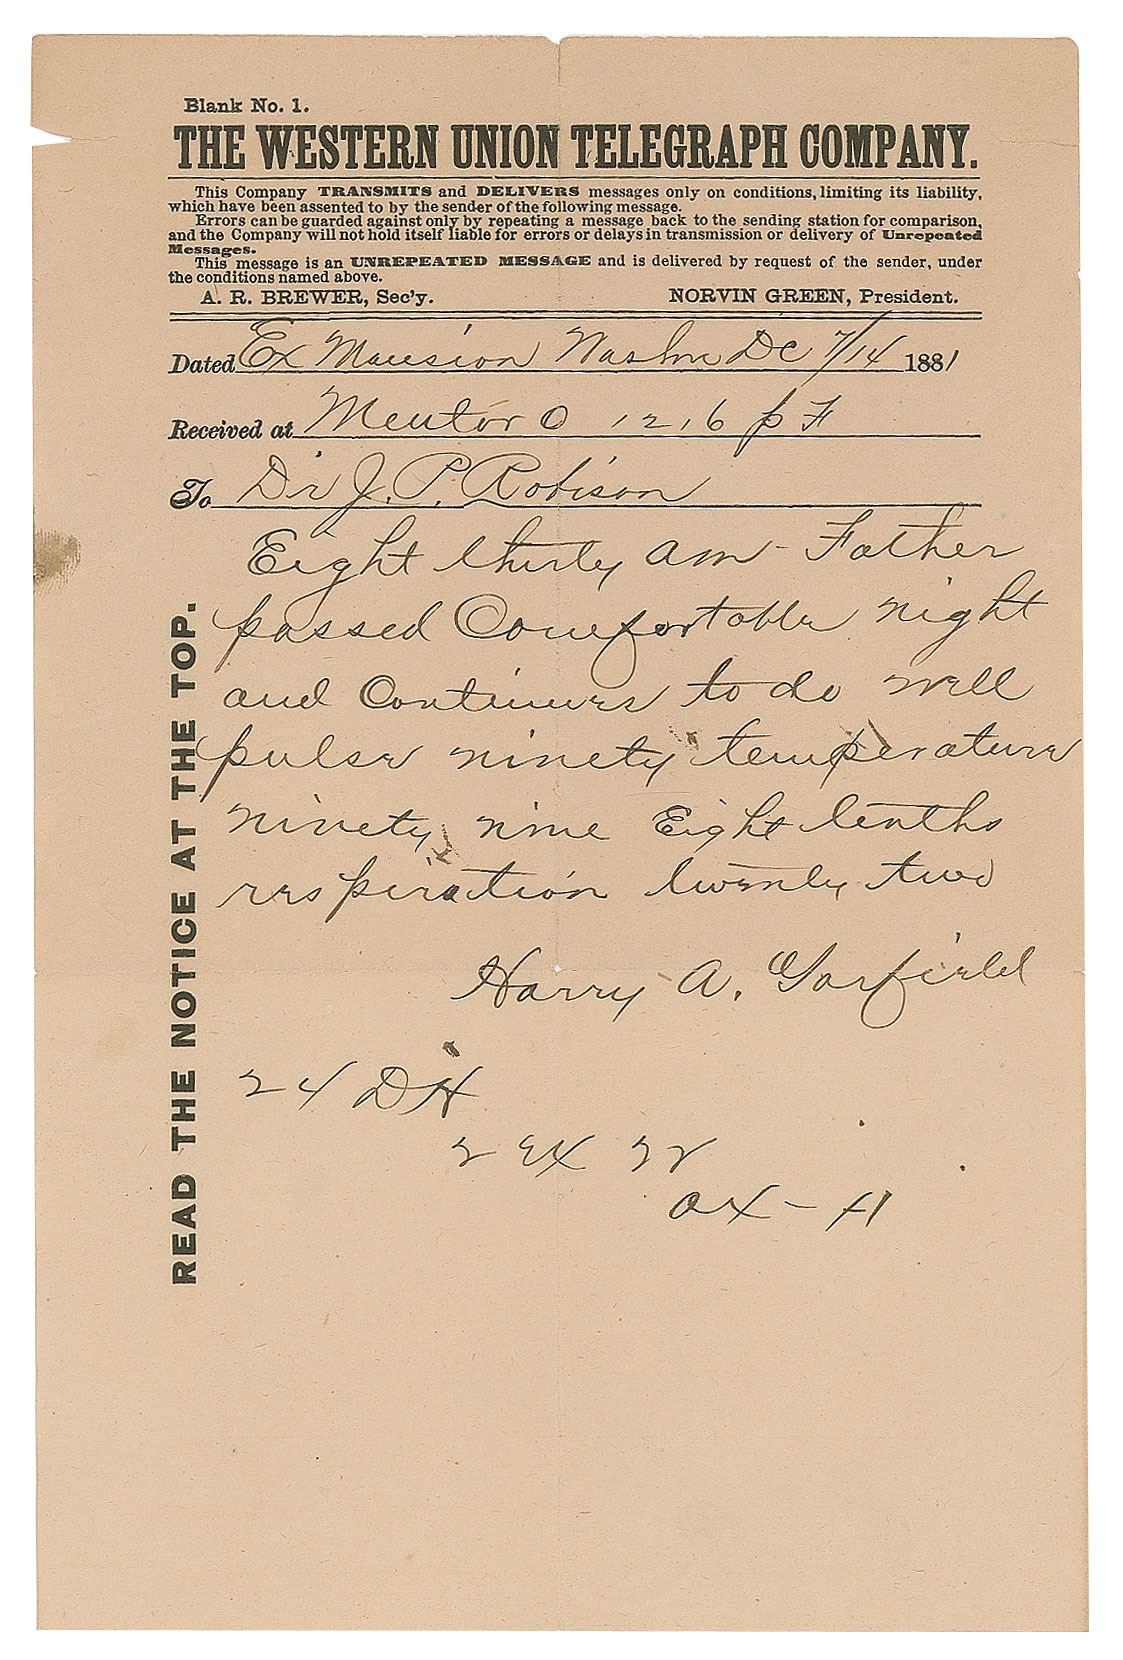 Blank No. 1.
THE WESTERN UNION TELEGRAPH COMPANY.
This Company TRANSMITS and DELIVERS messages only on conditions, limiting its liability,
which have been assented to by the sender of the following message.
Errors can be guarded against only by repeating a message back to the sending station for comparison,
and the Company will not hold itself liable for errors or delays in transmission or delivery of Unrepeated
Messages.
This message is an UNREPEATED MESSAGE and is delivered by request of the sender, under
the conditions named above.
A. R. BREWER, Sec'y. NORVIN GREEN, President.
Dated Ex Mansion Washn DC 7/14 1881
Received at Mentor O 12,16 p F
To Dr J. P. Robison
Eight thirty am - Father
passed Comfortable night
and Continues to do well
pulse ninety temperature
ninety nine Eight tenths
respiration twenty two
Harry A. Garfield
24 DH
2 EX 22
OX - H
READ THE NOTICE AT THE TOP.